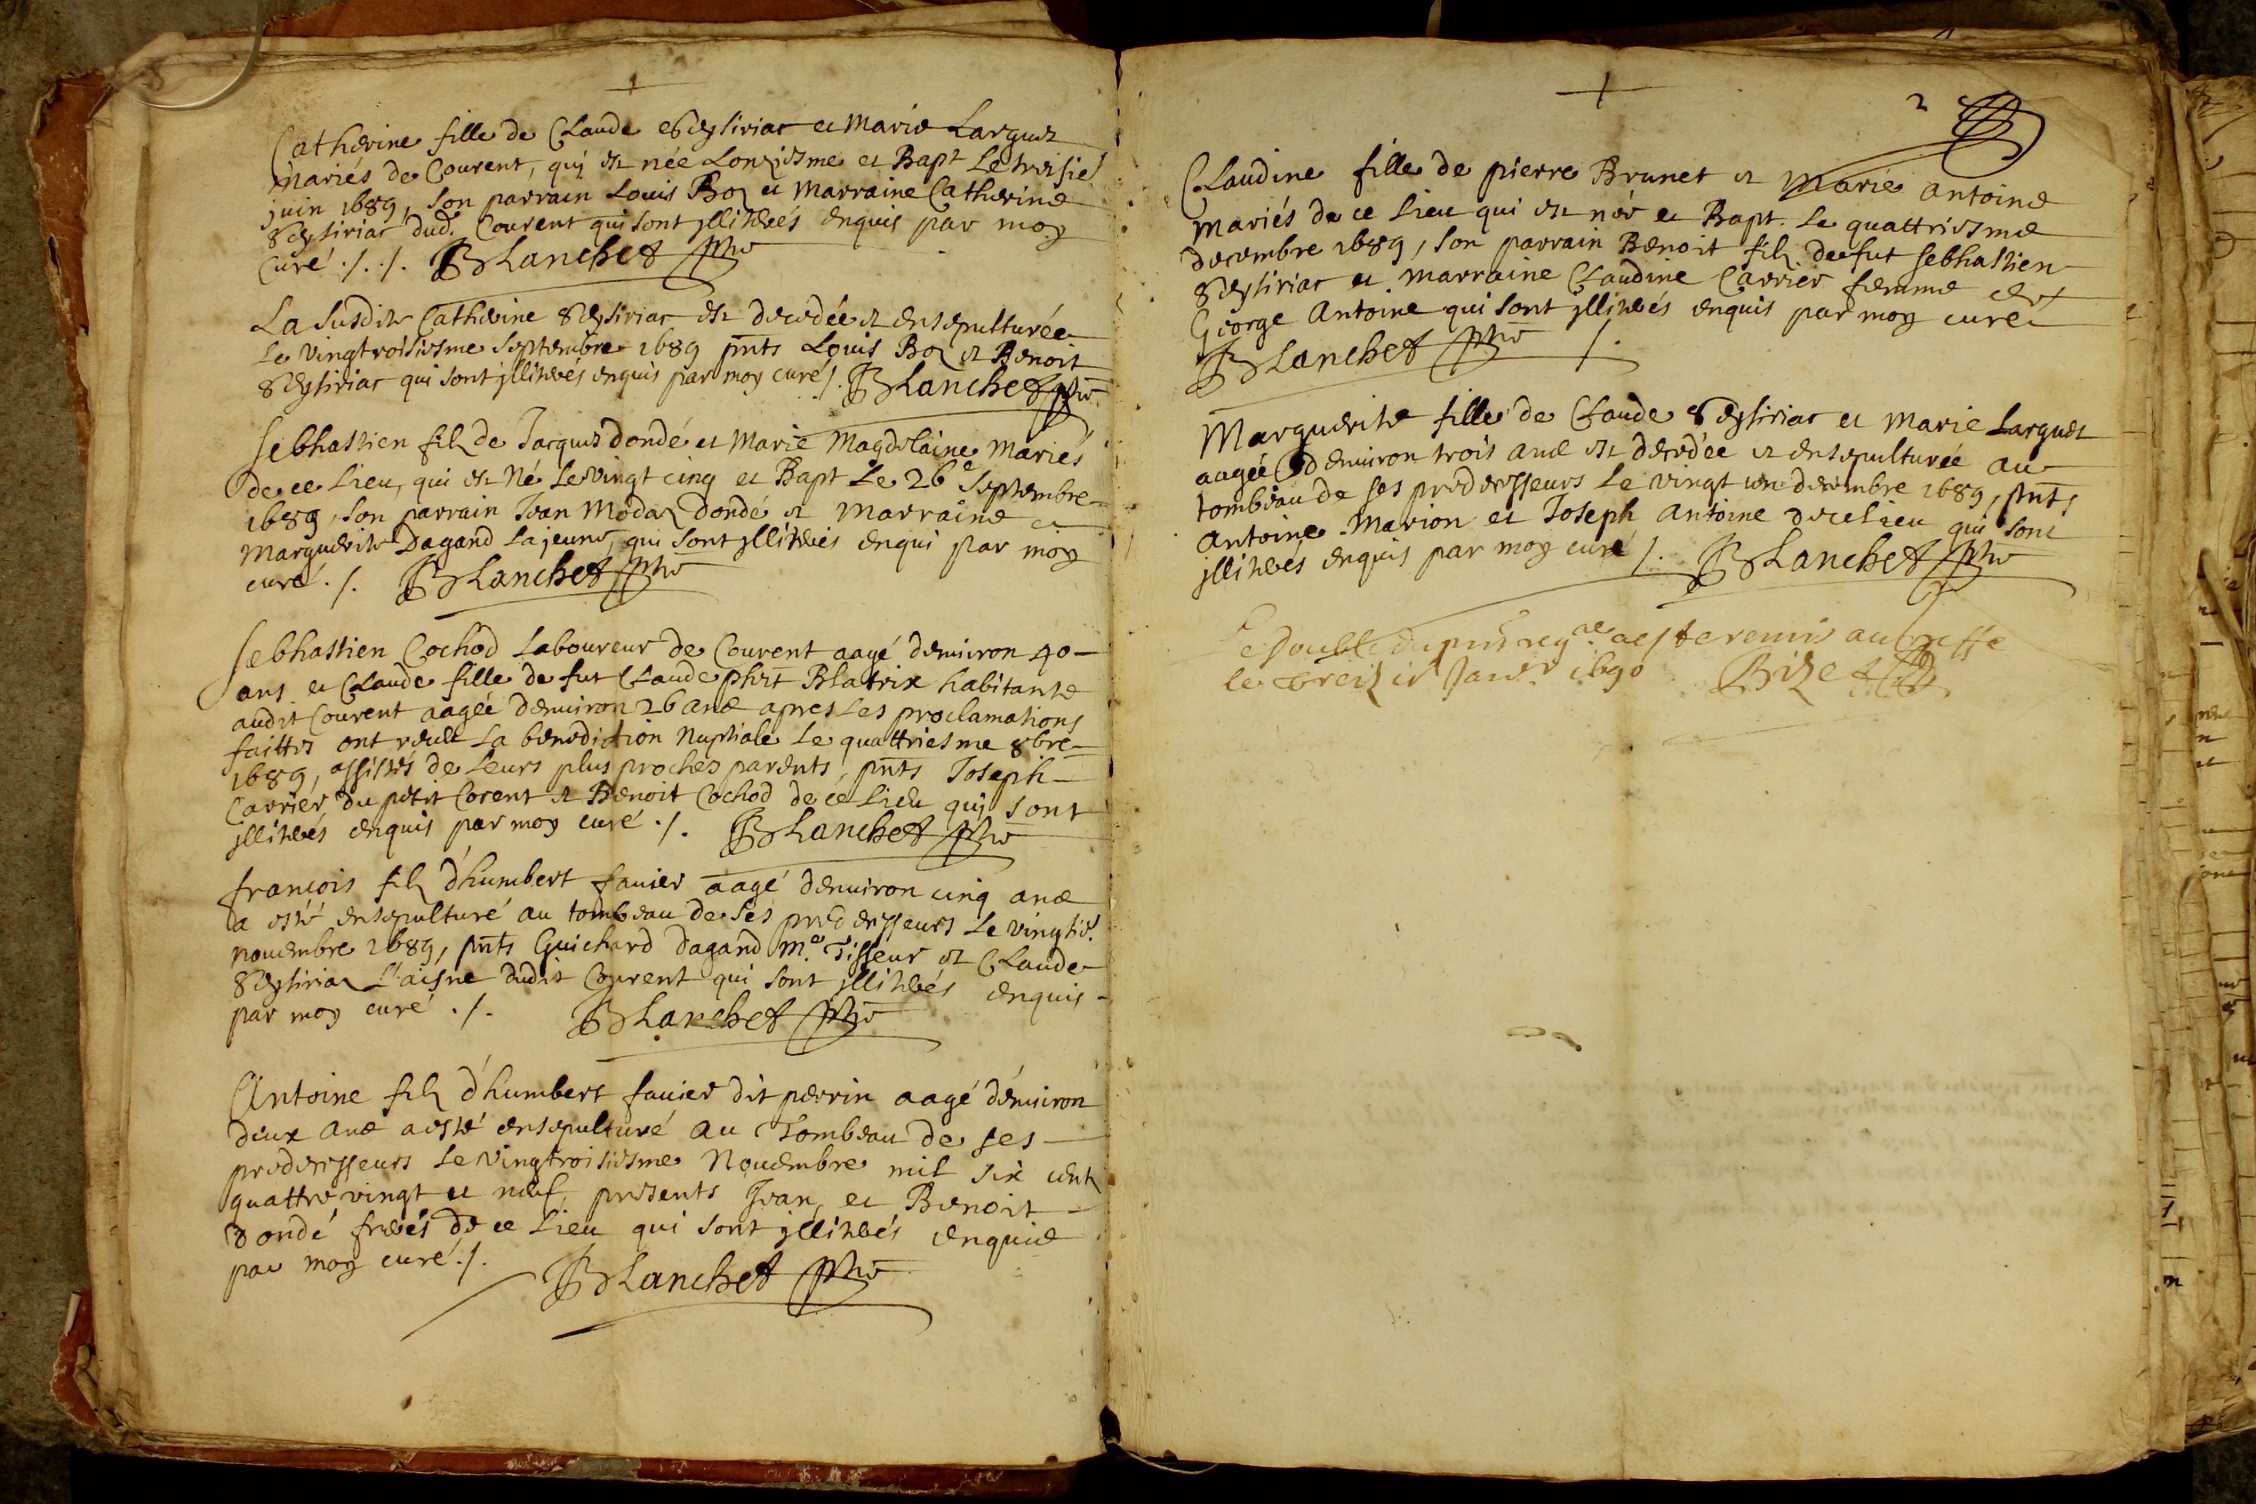 Catherine fille de Claude Seysiriac et Marie Larguet
Mariés de Courent, qui est née Lonziesme et Bapt Le treisie
juin 1689, son parrain Louis Boz et Marraine Catherine
Seysiriac dud. Courent qui sont jllitérés enquis par moy
curé ./. /. Blanchet ptre
La Susdite Catherine Seysiriac est decedée et ensepulturée
Le Vingtroisiesme Septembre 1689 pnts Louis Boz et Benoit
Seysiriac qui sont jllitérés enquis par moy curé /. Blanchet ptre
Sebhastien filz de Jacques dondé et Marie Magdelaine Mariés
de ce Lieu, qui est Né Le vingt cinq et Bapt Le 26e Septembre
1689, son parrain Jean Modaz dondé et marraine
Marguerite Dagand La jeune, qui sont jllitérés enqui par moy
curé. /. Blanchet ptre
Sebhastien Cochod Laboureur de Courent aagé denuiron 40
ans et Claude fille de fut Claude phct Blatrix habitante
audit Courent aagée denuiron 26 ans apres Les proclamations
faittes ont receu La benediction Nuptiale Le quattriesme 8bre
1689, assistés de Leurs plus proches parents, pnts Joseph
Carrier du petit Corent et Benoit Cochod de ce Lieu qui sont
jllitérés enquis par moy curé ./. Blanchet ptre
françois filz d'humbert fauier aagé denuiron cinq ans
a esté ensepulturé au tombeau de ses predecesseurs Le vingtie.
nouembre 1689, pnts Guichard Dagand Me. Tisseur et Claude
Seysiriaz L'aisne dudit Courent qui sont jllitérés enquis
par moy curé ./. Blanchet ptre
Antoine filz d'humbert fauier dit perrin aagé denuiron
deux ans a esté ensepulturé au Tombeau de ses
predecesseurs Le vingtroisiesme Nouembre mil six centz
quattre vingt et neuf, presents Jean, et Benoit
Dondé freres de ce Lieu qui sont jllitérés enquis
par moy curé ./. Blanchet ptre
2
Claudine fille de pierre Brunet et Marie Antoine
Mariés de ce Lieu qui est née et Bapt. Le quattriesme
decembre 1689, son parrain Benoit filz de fut Sebhastien
Seysiriac et marraine Claudine Carrier femme de
George Antoine qui sont jllitérés enquis par moy curé
Blanchet ptre /.
Marguerite fille de Claude Seysiriac et Marie Larguet
aagée denuiron trois ans est decedée et ensepulturée au
tombeau de ses predecesseurs Le vingt un decembre 1689, pnts
Antoine Marion et Joseph Antoine de ce Lieu qui sont
jllitérés enquis par moy curé /. Blanchet ptre
Le double du pnt regre a esté remis au Greffe
le treizie Janer 1690 Bizet